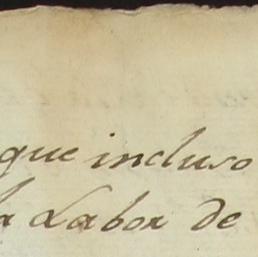 que incluso
la Labor de